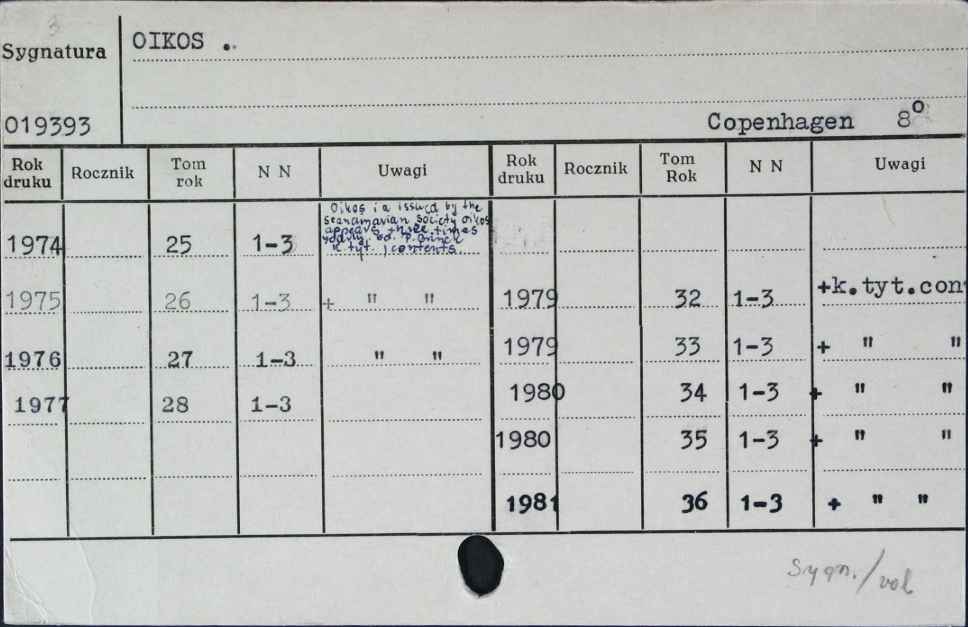 3
Sygnatura OIKOS .
019393 Copenhagen 8°
Rok druku Rocznik Tom rok N N Uwagi Rok druku Rocznik Tom Rok N N Uwagi
Oikos is issued by the
Scandinavian Society Oikos
appears three times
yearly, ed. P. Brinck
k. tyt. , contents.
1974 25 1-3
1975 26 1-3 + " " 1979 32 1-3 +k.tyt.con
1976 27 1-3 " " 1979 33 1-3 + " "
1977 28 1-3 1980 34 1-3 + " "
1980 35 1-3 + " "
1981 36 1-3 + " "
Sygn./vol